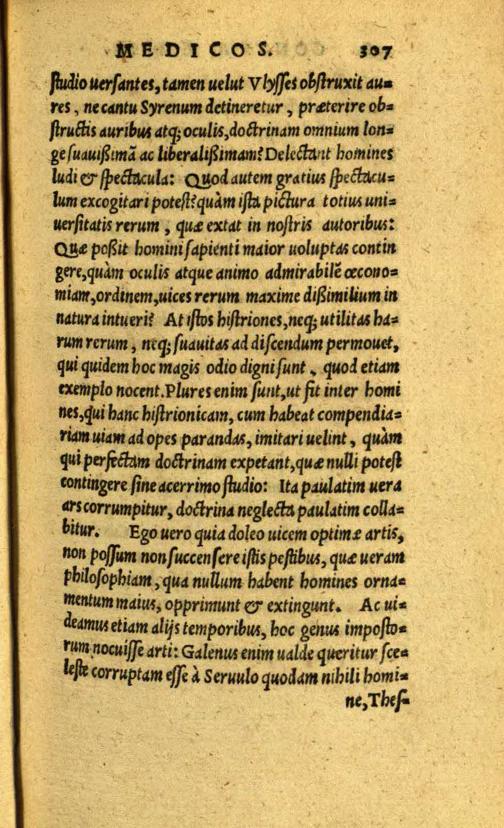 MEDICOS. 307
studio uersantes, tamen uelut Vlysses obstruxit au=
res, ne cantu Syrenum detineretur, præterire ob=
structis auribus atq; oculis, doctrinam omnium lon=
ge suauißimã ac liberalißimam? Delectant homines
ludi & spectacula: Quod autem gratius spectacu=
lum excogitari potest? quàm ista pictura totius uni=
uersitatis rerum, quæ extat in nostris autoribus:
Quæ poßit homini sapienti maior uoluptas contin
gere, quàm oculis atque animo admirabilẽ œcono=
miam, ordinem, uices rerum maxime dißimilium in
natura intueri? At istos histriones, neq; utilitas ha=
rum rerum, neq; suauitas ad discendum permouet,
qui quidem hoc magis odio digni sunt, quod etiam
exemplo nocent. Plures enim sunt, ut fit inter homi
nes, qui hanc histrionicam, cum habeat compendia=
riam uiam ad opes parandas, imitari uelint, quàm
qui perfectam doctrinam expetant, quæ nulli potest
contingere sine acerrimo studio: Ita paulatim uera
ars corrumpitur, doctrina neglecta paulatim colla=
bitur. Ego uero quia doleo uicem optimæ artis,
non possum non succensere istis pestibus, quæ ueram
philosophiam, qua nullum habent homines orna=
mentum maius, opprimunt & extingunt. Ac ui=
deamus etiam alijs temporibus, hoc genus imposto=
rum nocuisse arti: Galenus enim ualde queritur sce=
leste corruptam esse à Seruulo quodam nihili homi=
ne, Thes=